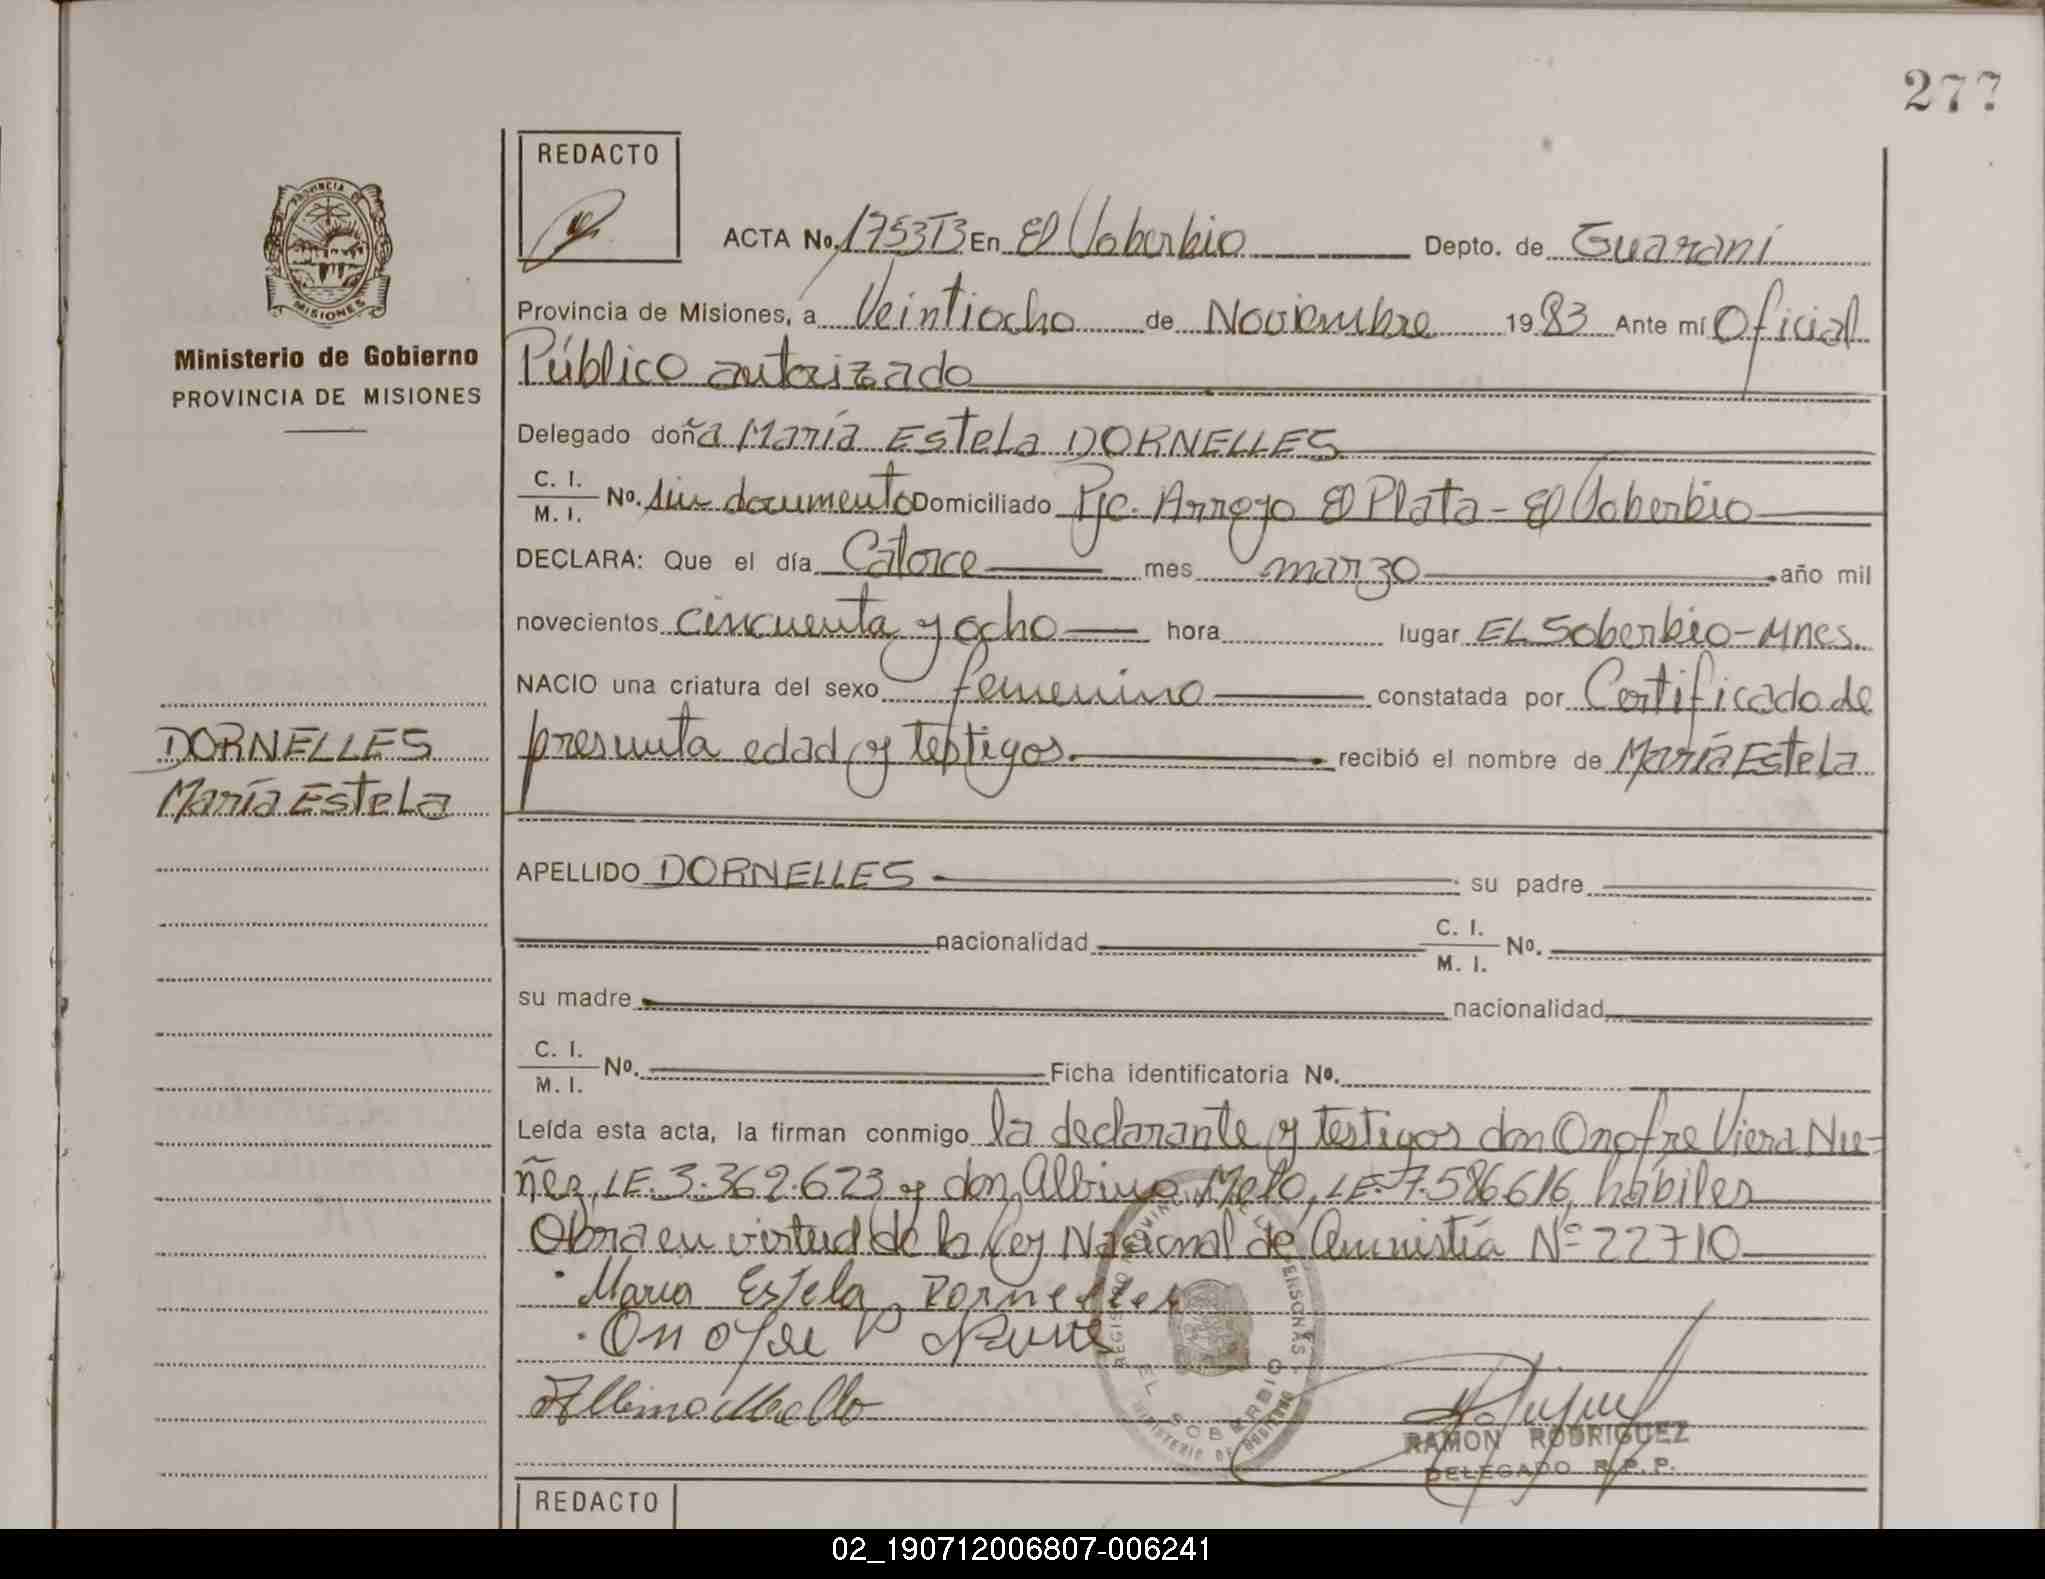 277
REDACTO
ACTA No. 1753T3 En El Soberbio Depto. de Guaraní
Provincia de Misiones, a Veintiocho de Noviembre 1983 Ante mí Oficial
Público autorizado
Ministerio de Gobierno
PROVINCIA DE MISIONES
Delegado doña María Estela DORNELLES
C. I.
M. I. No. sin documento Domiciliado Pje. Arroyo El Plata - El Soberbio
DECLARA: Que el día Catorce mes marzo año mil
novecientos cincuenta y ocho hora lugar EL Soberbio - Mnes.
NACIO una criatura del sexo femenino constatada por Certificado de
presunta edad y testigos. recibió el nombre de María Estela
DORNELLES
María Estela
APELLIDO DORNELLES su padre
nacionalidad C. I.
M. I. No.
su madre nacionalidad
C. I.
M. I. No. Ficha identificatoria No.
Leída esta acta, la firman conmigo la declarante y testigos don Onofre Viera Nu-
ñez, LE. 3.362.623 y don Albino Melo, LE. 7.586.616, hábiles
Obra en virtud de la Ley Nacional de Amnistía Nº 22710
Maria Estela Dornelles
Onofre V Nunes
Albino Mello
REGISTRO PROVINCIAL DE LAS PERSONAS
EL SOBERBIO
MINISTERIO DE GOBIERNO
RAMON RODRIGUEZ
DELEGADO R.P.P.
REDACTO
02_190712006807-006241